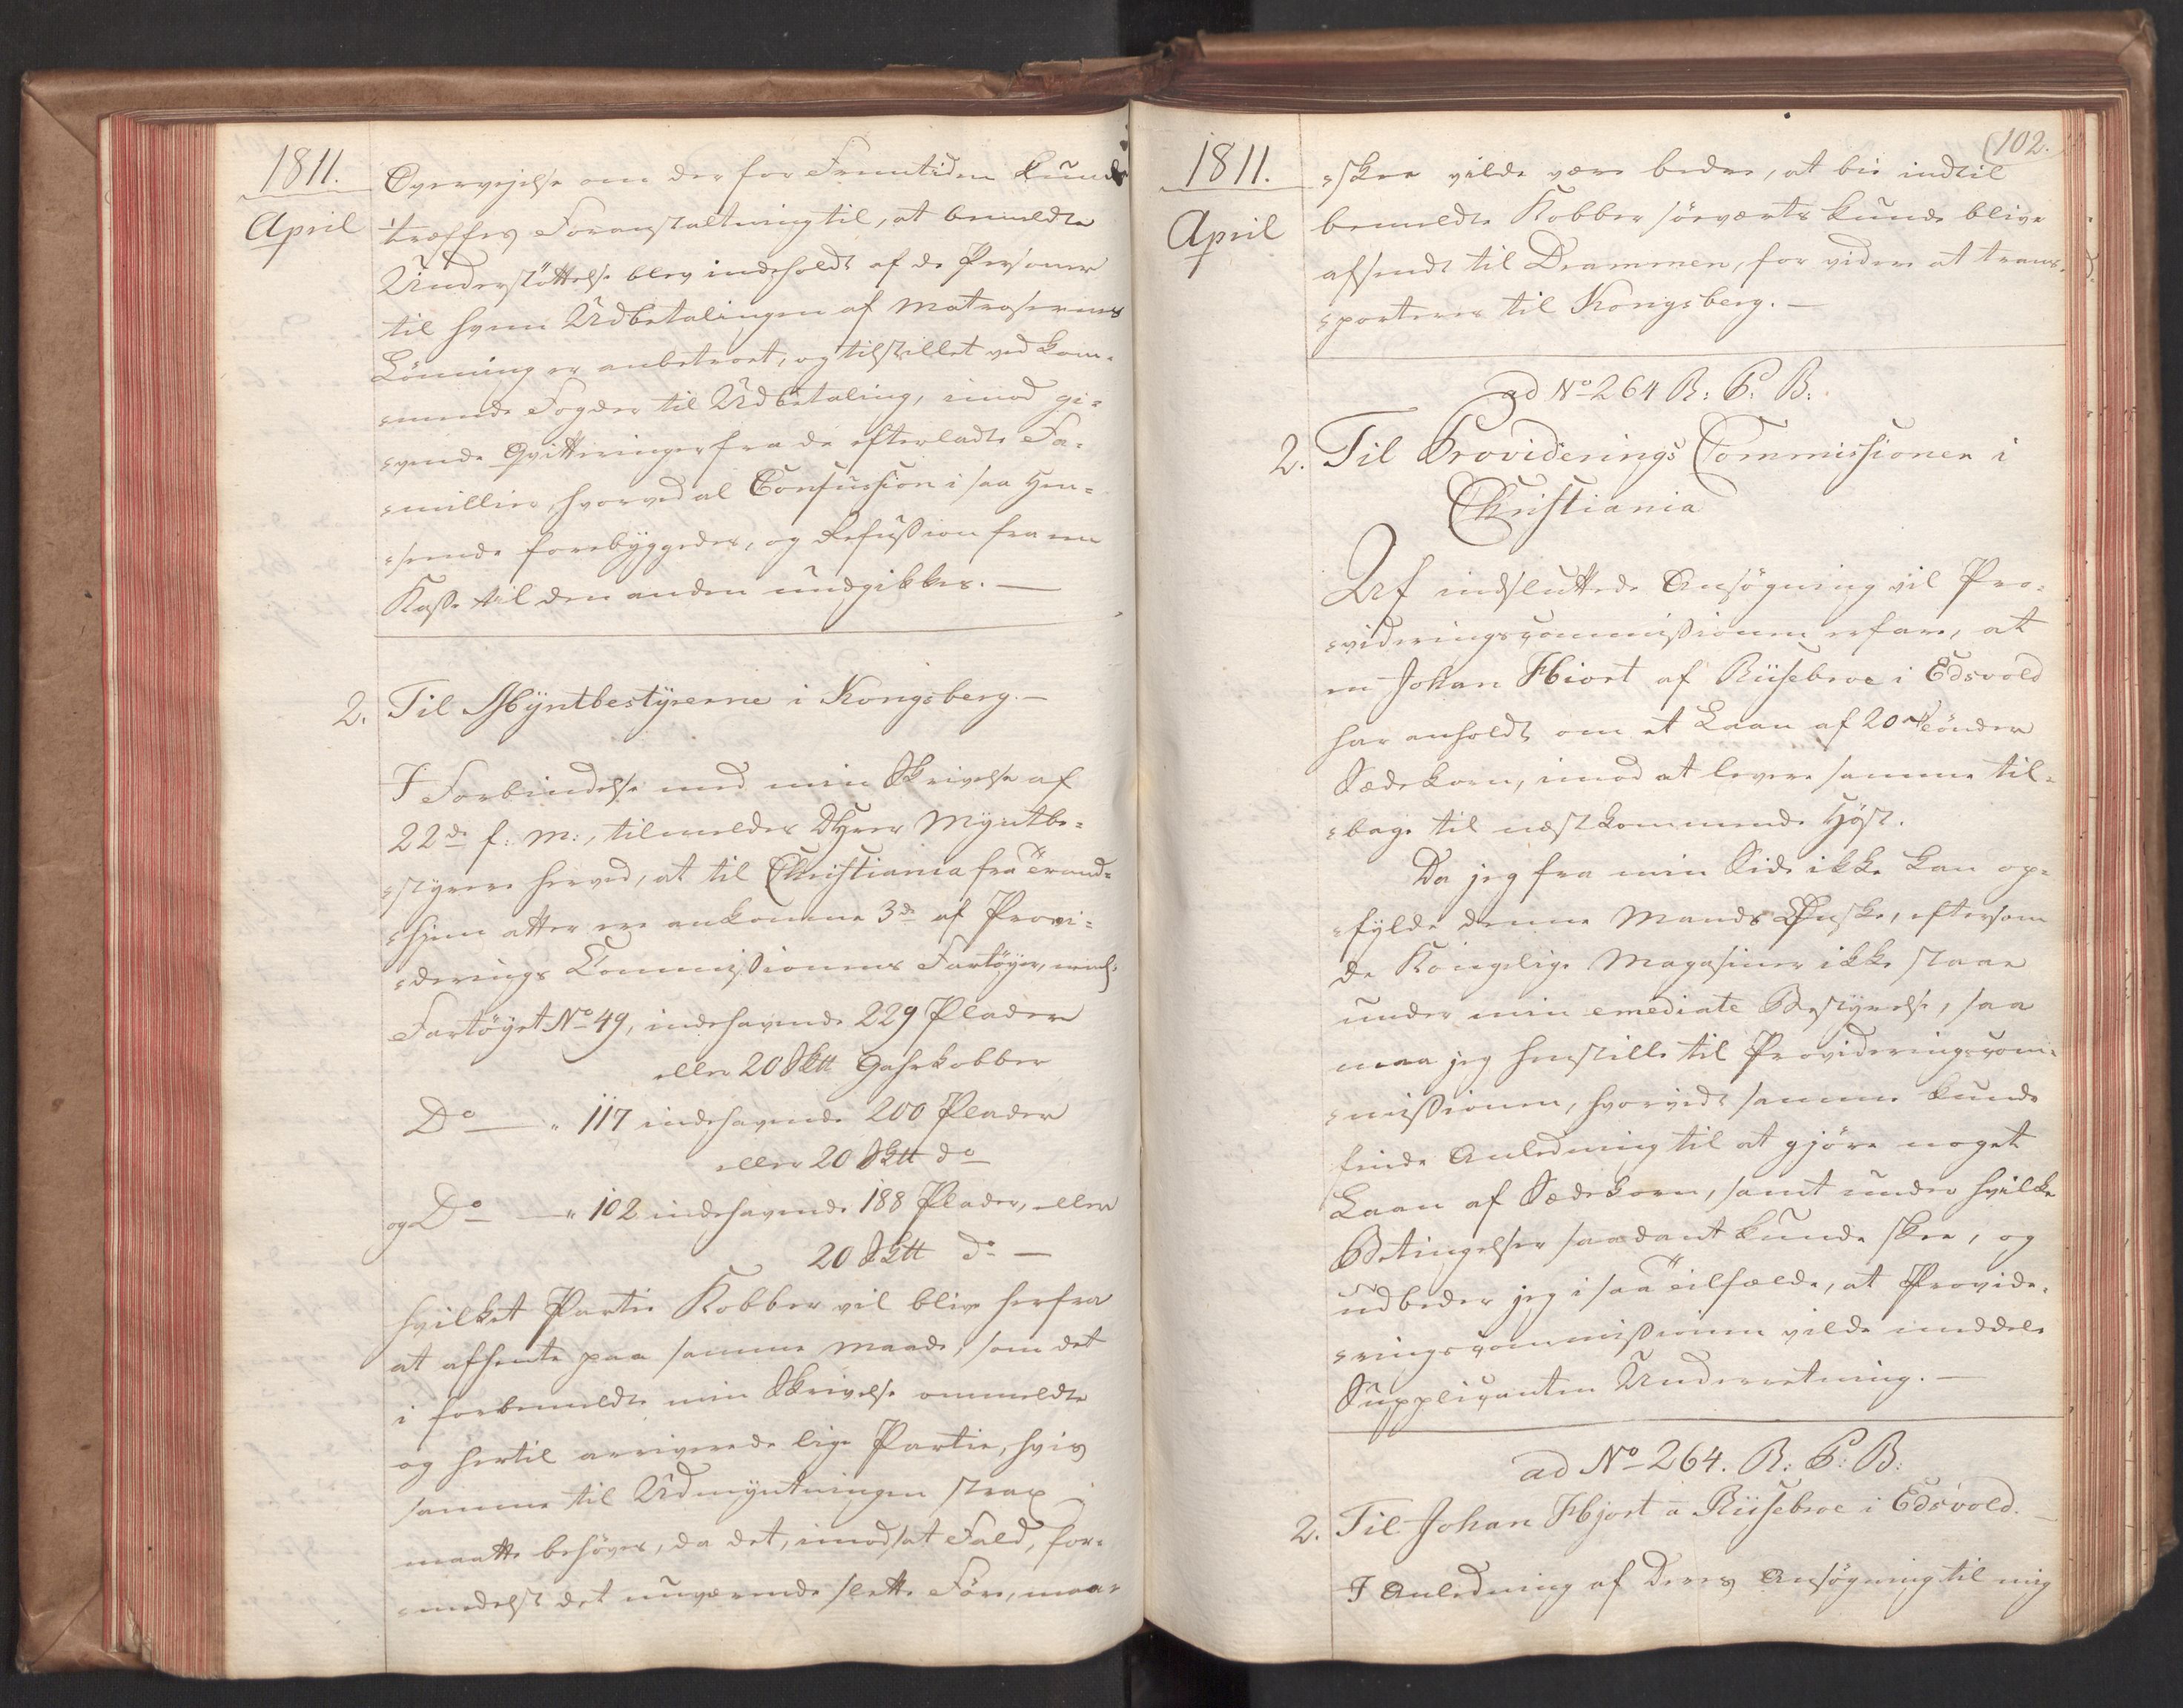 1811.
April
Overvejelse om der for Fremtiden kunde
træffes Foranstaltning til, at bemeldte
Understöttelse blev indeholdt af de Personer
til hvem Udbetalingen af Matrosernes
Lönning er anbetroet, og tilstillet vedkom-
mende Fogder til Udbetaling, imod gi-
vende Qvitteringer fra de efterladte Fa-
millier, hvorved al Confussion i saa Hen-
seende forebyggedes, og Refußion fra en
Kaße til den anden undgikkes. —
2. Til Myntbestyrerne i Kongsberg. —
I Forbindelse med min Skrivelse af
22de f: M:, tilmeldes DHrer Myntbe-
styrere herved, at til Christiania fra Trond-
hjem atter ere ankomne 3de af Provi-
derings Commißionens Fartöyer, neml:
Fartöyet No 49, indehavende 229 Plader
eller 20 Sk℔ Gahrkobber
Do — " 117 indehavende 200 Plader
eller 20 Sk℔ do
og Do — " 102 indehavende 188 Plader, eller
20 Sk℔ do —
hvilket Partie Kobber vil blive herfra
at afhente paa samme Maade, som det
i forbemeldte min Skrivelse ommeldte
og hertil arriverede lige Partie, hvis
samme til Udmyntningen strax
maatte behöves, da det, i modsat Fald, for-
medelst det nuværende slette Före, maa-
1811.
April
102.
skee vilde være bedre, at bie indtil
bemeldte Kobber söeværts kunde blive
afsendt til Drammen, for videre at trans-
porteres til Kongsberg. —
ad No 264 R: P: B:
2. Til Providerings Commissionen i
Christiania
Af indsluttede Ansögning vil Pro-
videringscommißionen erfare, at
en Johan Hiort af Riisebroe i Edsvold
har anholdt om et Laan af 20 Tönder
Sædekorn, imod at levere samme til-
bage til næstkommende Höst.
Da jeg fra min Side ikke kan op-
fylde denne Mands Önske, eftersom
de Kongelige Magasiner ikke staae
under min emediate Bestyrelse, saa
maa jeg henstille til Provideringscom-
mißionen, hvorvidt samme kunde
finde Anledning til at gjöre noget
Laan af Sædekorn, samt under hvilke
Betingelser saadant kunde skee, og
udbeder jeg i saa Tilfælde, at Provide-
ringscommißionen vilde meddele
Supplicanten Underretning. —
ad No 264. R: P: B:
2. Til Johan Hjort a Riisebroe i Edsvold. —
I Anledning af Deres Ansögning til mig